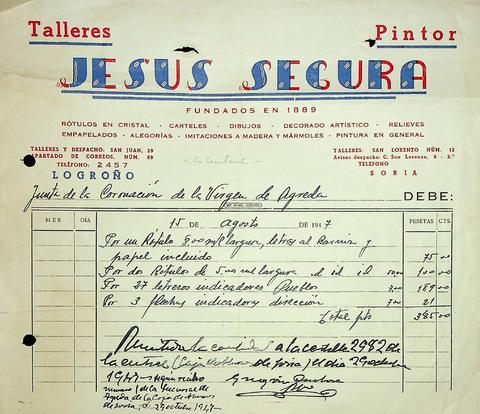 Talleres Pintor
JESUS SEGURA
FUNDADOS EN 1889
RÓTULOS EN CRISTAL - CARTELES - DIBUJOS - DECORADO ARTÍSTICO - RELIEVES
EMPAPELADOS - ALEGORÍAS - IMITACIONES A MADERA Y MÁRMOLES - PINTURA EN GENERAL
TALLERES Y DESPACHO: SAN JUAN, 29
APARTADO DE CORREOS, NÚM. 89
TELÉFONO: 2457
LOGROÑO
TALLERES: SAN LORENZO NÚM. 12
Avisos despacho: C. San Lorenzo, 8 - 2.º
TELÉFONO
SORIA
Junta de la Coronación de la Virgen de Agreda DEBE:
MES DÍA PESETAS CTS.
15 DE agosto DE 1947
Por un Rótulo largura, letras al y
papel incluido 75 00
Por dos Rótulos de largura id id 100 00
Por 27 letreros indicadores Pueblo 7,00 189 00
Por 3 flechas indicadores dirección 7,00 21
Total pts 385 00
Remitida la cantidad a la cartilla 2982 de
la central (Caja de Ahorros de Soria) el día 2 octubre
1947
de la Sucursal de
Agreda de la Caja de Ahorros
de Soria, 2 octubre 1947